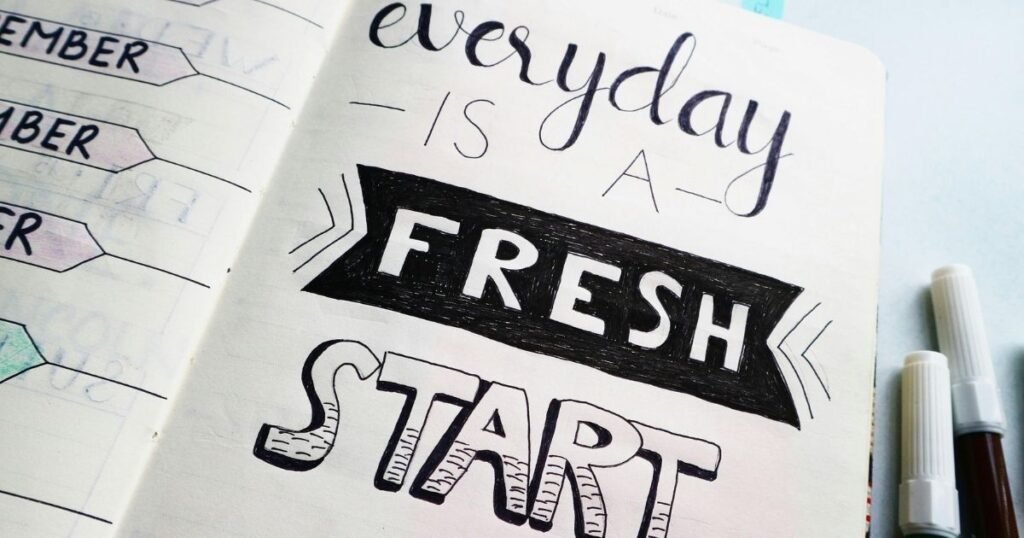 EMBER
MBER
ER
everyday
IS
A
FRESH
START